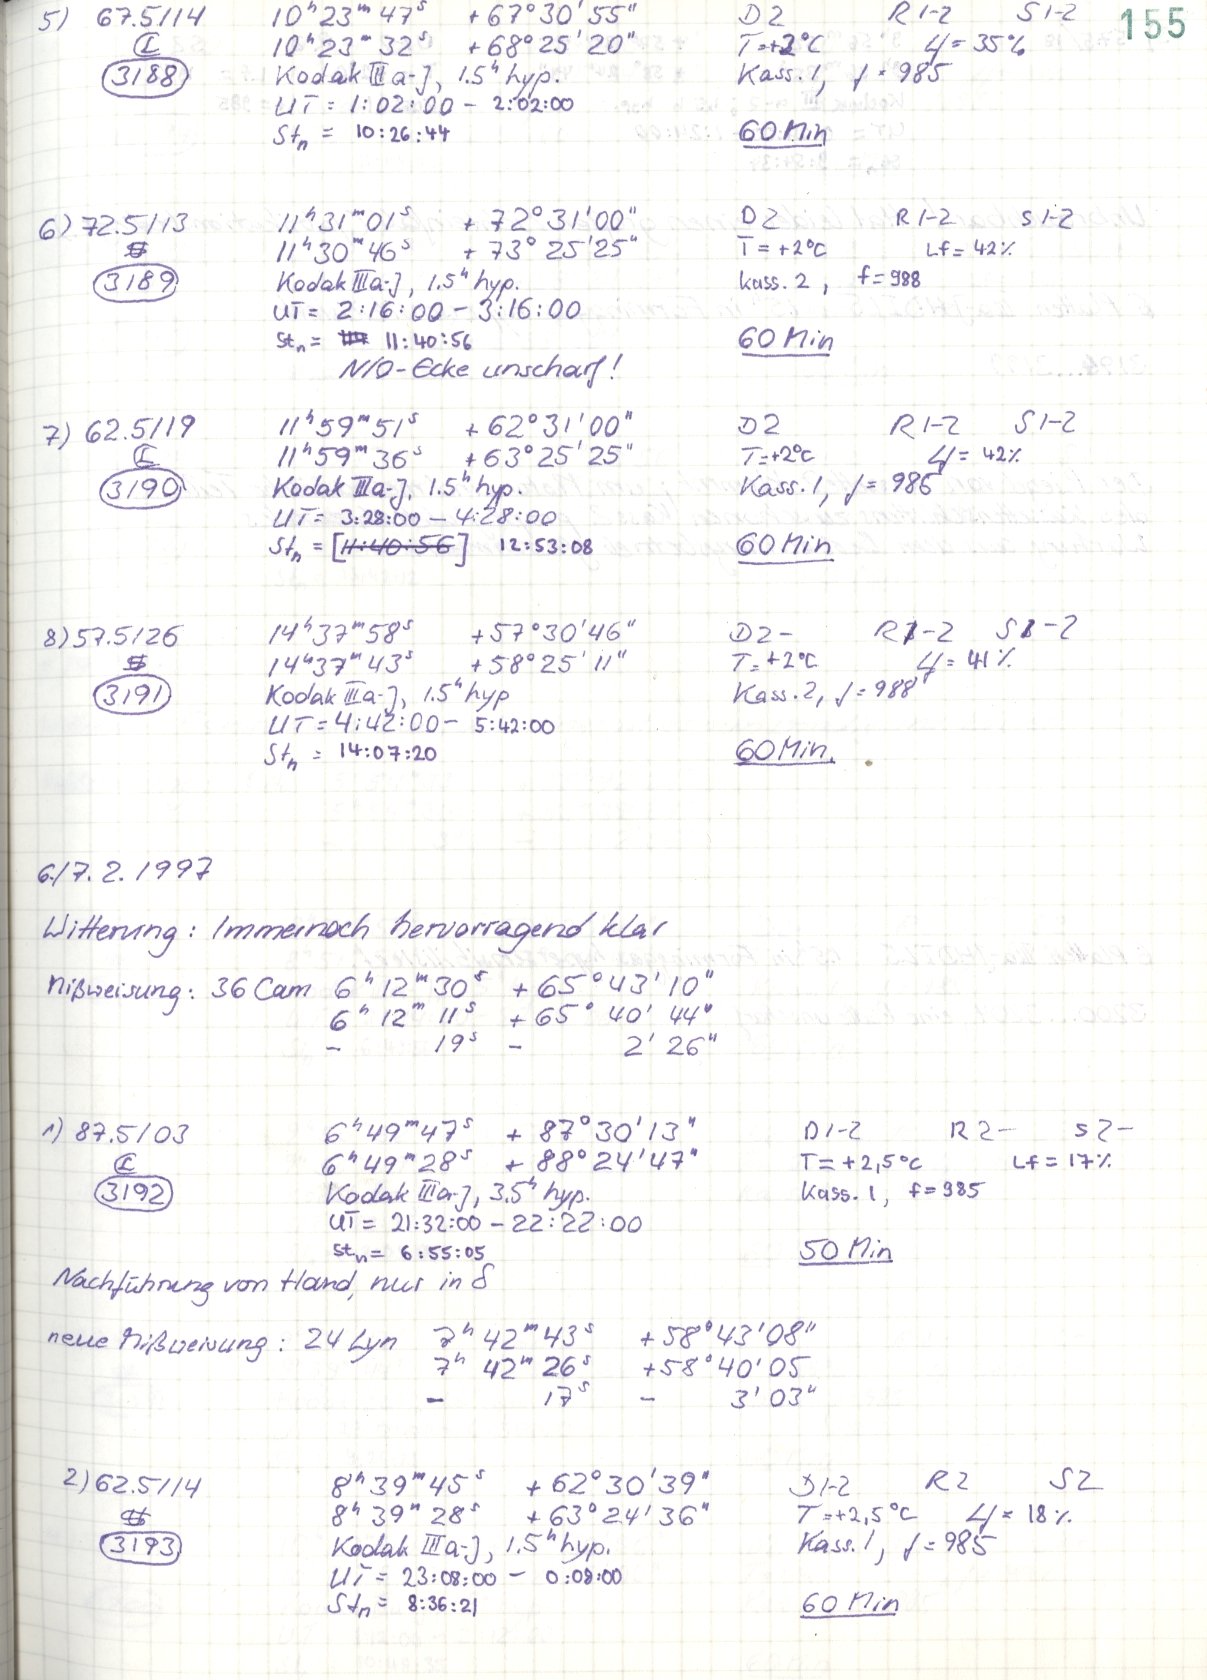 155
5) 67.5/14 10ʰ23ᵐ47ˢ +67°30'55" D2 R1-2 S1-2
10ʰ23ᵐ32ˢ +68°25'20" T=+2°C Lf=35%
3188 Kodak IIIa-J, 1.5ʰ hyp. Kass.1, f=985
UT = 1:02:00 - 2:02:00
Stₙ = 10:26:44 60 Min
6) 72.5/13 11ʰ31ᵐ01ˢ +72°31'00" D2 R1-2 S1-2
11ʰ30ᵐ46ˢ +73°25'25" T=+2°C Lf=42%
3189 Kodak IIIa-J, 1.5ʰ hyp. Kass. 2, f=988
UT = 2:16:00 - 3:16:00
Stₙ = 11:40:56 60 Min
N/O-Ecke unscharf!
7) 62.5/19 11ʰ59ᵐ51ˢ +62°31'00" D2 R1-2 S1-2
11ʰ59ᵐ36ˢ +63°25'25" T=+2°C Lf=42%
3190 Kodak IIIa-J, 1.5ʰ hyp. Kass.1, f=986
UT = 3:28:00 - 4:28:00
Stₙ = [11:40:56] 12:53:08 60 Min
8) 57.5/26 14ʰ37ᵐ58ˢ +57°30'46" D2- R1-2 S1-2
14ʰ37ᵐ43ˢ +58°25'11" T=+2°C Lf=41%
3191 Kodak IIIa-J, 1.5ʰ hyp Kass.2, f=988
UT = 4:42:00 - 5:42:00
Stₙ = 14:07:20 60 Min.
6./7. 2. 1997
Witterung: Immernoch hervorragend klar
Mißweisung: 36 Cam 6ʰ12ᵐ30ˢ +65°43'10"
6ʰ12ᵐ11ˢ +65°40'44"
- 19ˢ - 2'26"
1) 87.5/03 6ʰ49ᵐ47ˢ +87°30'13" D1-2 R2- S2-
6ʰ49ᵐ28ˢ +88°24'47" T=+2,5°C Lf=17%
3192 Kodak IIIa-J, 3.5ʰ hyp. Kass. 1, f=985
UT = 21:32:00 - 22:22:00
Stₙ = 6:55:05 50 Min
Nachführung von Hand, nur in δ
neue Mißweisung: 24 Lyn 7ʰ42ᵐ43ˢ +58°43'08"
7ʰ42ᵐ26ˢ +58°40'05
- 17ˢ - 3'03"
2) 62.5/14 8ʰ39ᵐ45ˢ +62°30'39" D1-2 R2 S2
8ʰ39ᵐ28ˢ +63°24'36" T=+2,5°C Lf=18%
3193 Kodak IIIa-J, 1.5ʰ hyp. Kass.1, f=985
UT = 23:08:00 - 0:08:00
Stₙ = 8:36:21 60 Min